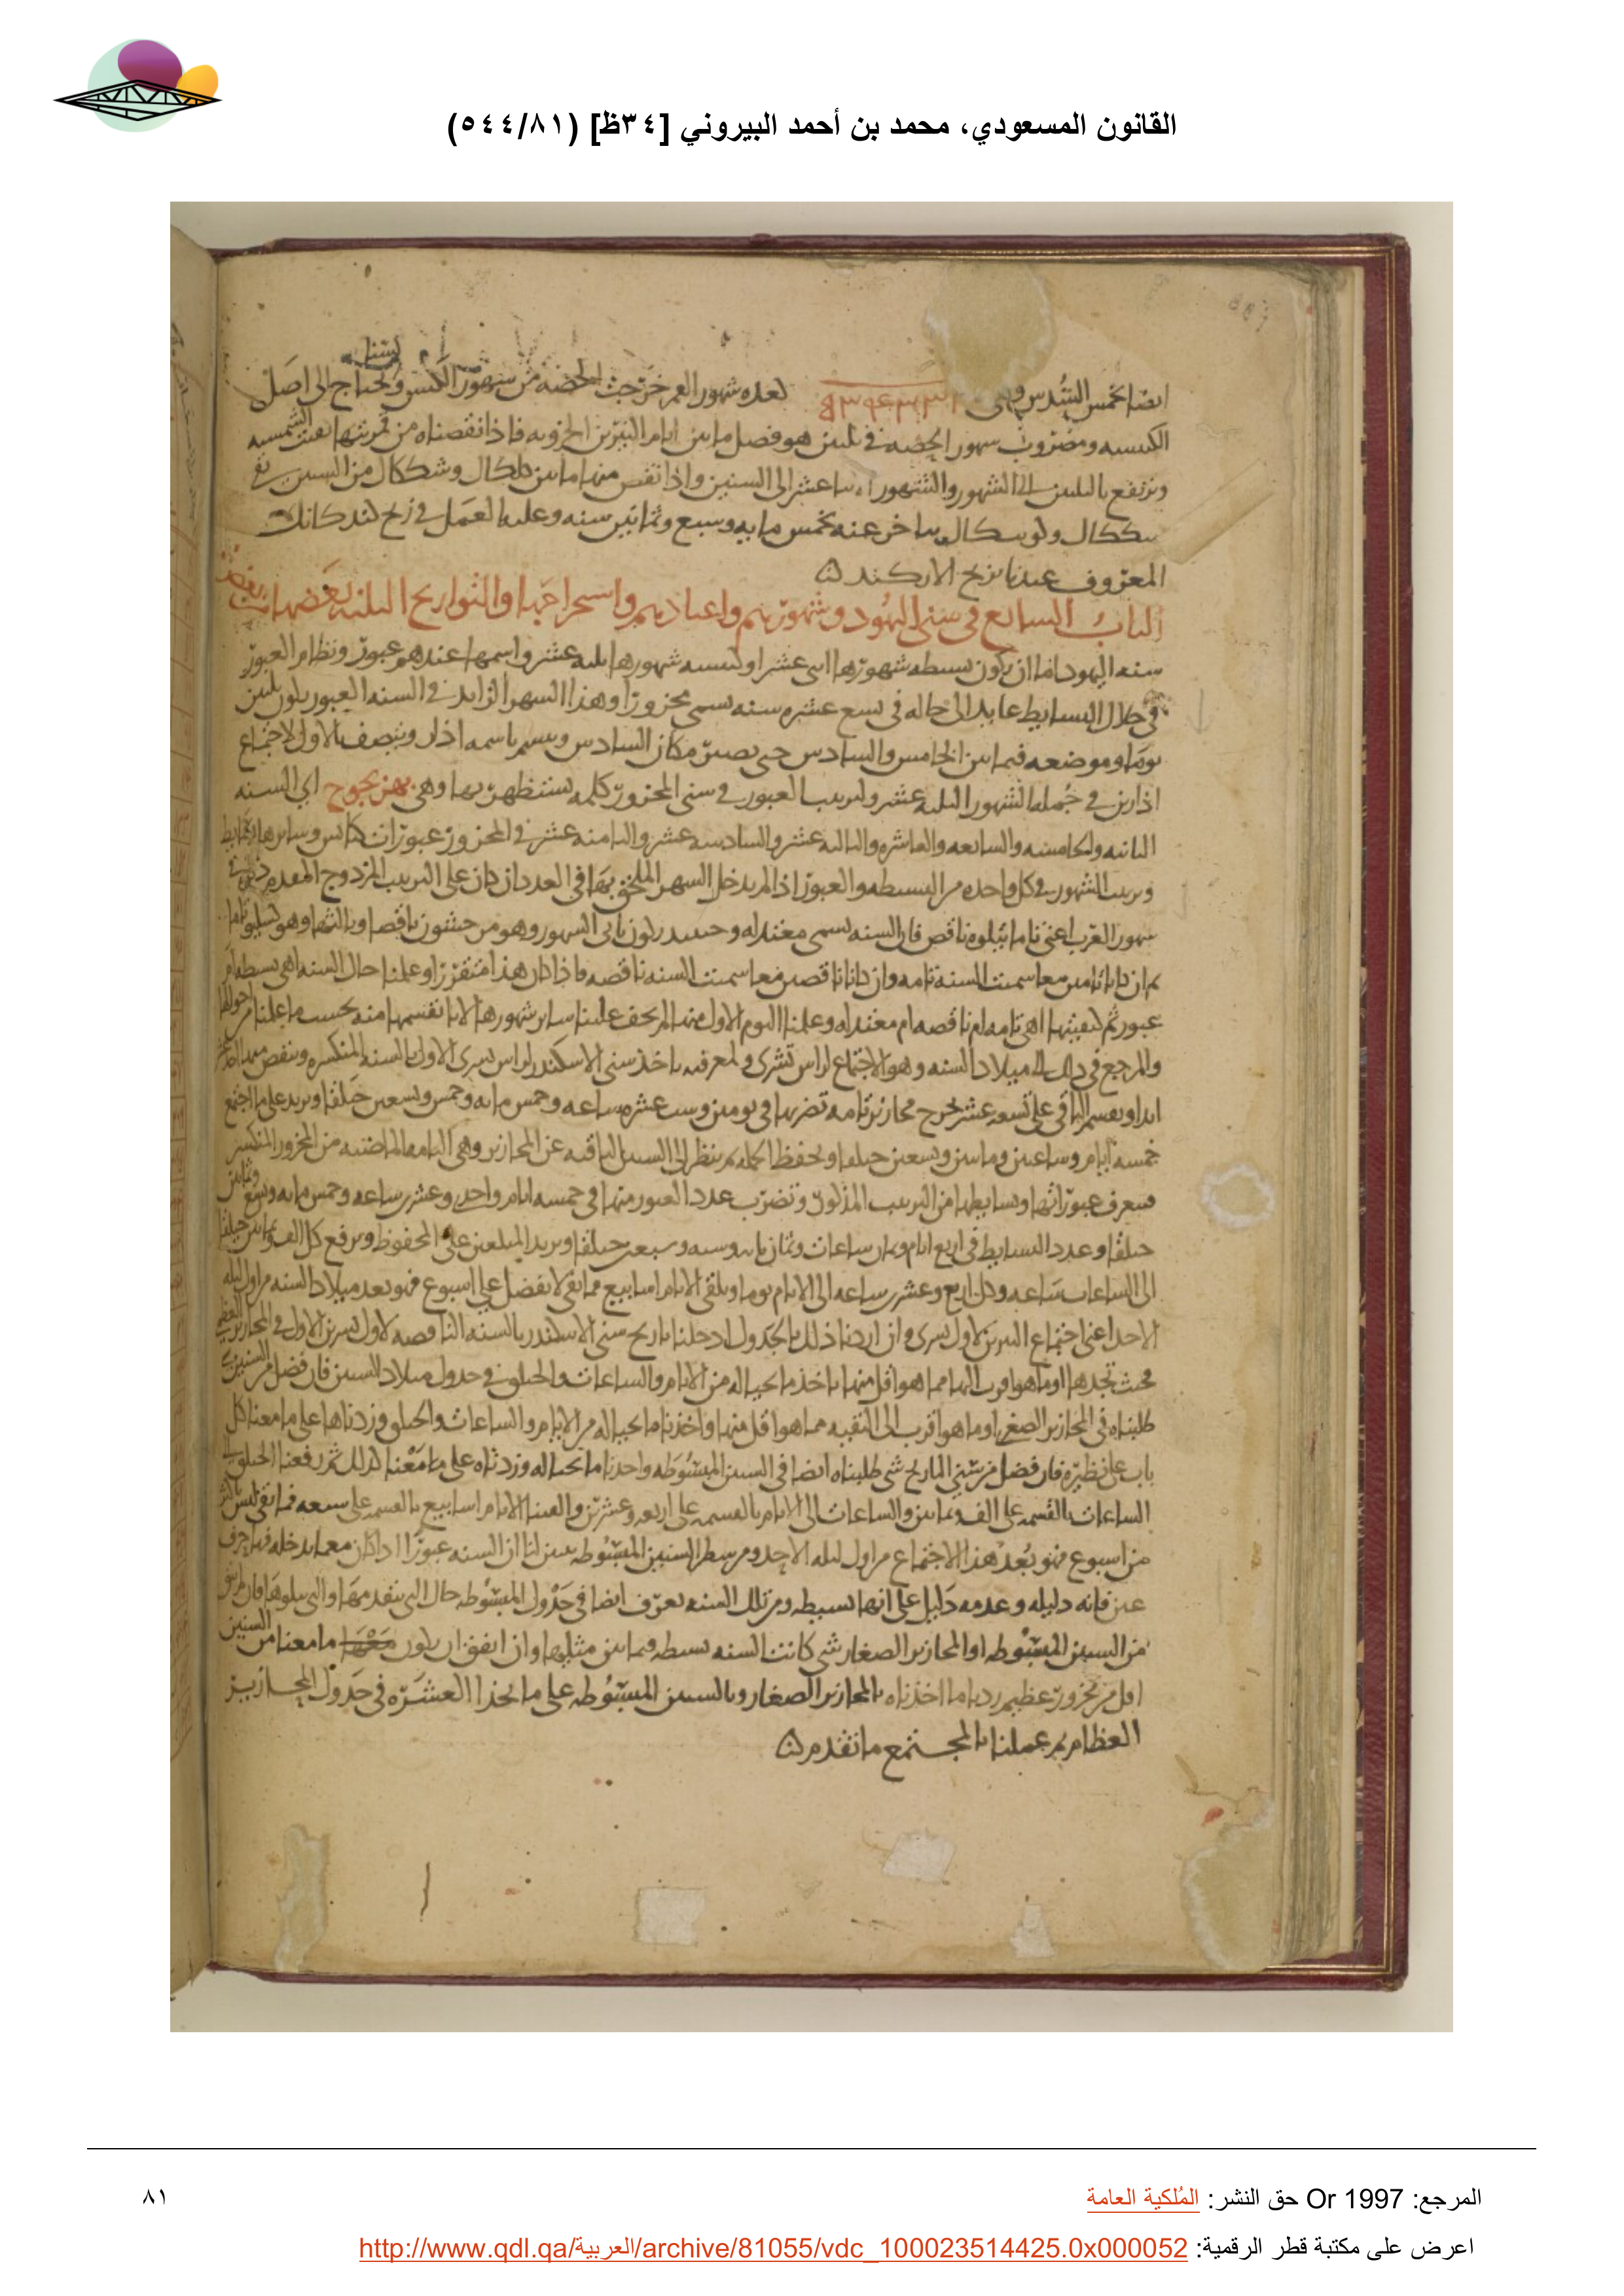 القانون المسعودي، محمد بن أحمد البيروني [٣٤ظ] (٥٤٤/٨١)
ايضا بخمس السدس وهى لعده شهور القمر خرجت الحصه من شهور الكبس ونحتاج الى اصل
الكبيسه ومضروب شهور الحصه فى ثلثين هو فصل ما بين ايام النيرين الجزويه فاذا نقصناه من قمريتها بقيت الشمسيه
وترتفع بالثلثين الى الشهور والشهور باثنا عشر الى السنين واذا نقص منها ما بين كلكال وشككال من السنين بقى
شككال ولوسكال يتاخر عنه بخمس مايه وسبع وثمانين سنه وعليه العمل فى زيج كندكاتك
المعروف عندنا بزيج الاركند
الباب السابع فى سنى اليهود وشهورهم واعيادهم واستخراجها والتواريخ الثلثه بعضها من بعض
سنه اليهود اما ان يكون بسيطه شهورها اثنى عشر او كبيسه شهورها ثلثه عشر واسمها عندهم عبور ونظام العبور
فى خلال البسايط عايد الى حاله فى تسع عشره سنه تسمى محزورا وهذا الشهر الزايد فى السنه العبور يكون ثلثين
يوما وموضعه فيما بين الخامس والسادس حتى يصير مكان السادس ويسمى باسمه اذار ويتصف بالاول لاجتماع
اذارين فى جمله الشهور الثلثه عشر ولترتيب العبور فى سنى المحزور كلمه يستظهر بها وهى بهزيجوح اى السنه
الثانيه والخامسه والسابعه والعاشره والثالثه عشر والسادسه عشر والثامنه عشر فى المحزور عبورات كبايس وسايرها بسايط
وترتيب الشهور فى كل واحده من البسيطه والعبور اذا لم يدخل الشهر الملحق بها فى العدد ان كان على الترتيب المزدوج المقدم ذكره فى
شهور العرب اعنى تاما يتلوه ناقص فان السنه تسمى معتدله وحينئذ يكون ثانى الشهور وهو مرحشون ناقصا وثالثها وهو كسليو تاما
ثم ان كانا تامين معا سميت السنة تامه وان كانا ناقصين معا سميت السنه ناقصه فاذا كان هذا متقررا وعلمنا حال السنه اهى بسيطه ام
عبور ثم كيفيتها اهى تامه ام ناقصه ام معتدله وعلمنا اليوم الاول منها لم يخف علينا ساير شهورها لانا نقسمها منه بحسب ما علمنا من احوالها
والمرجع فى ذلك الى ميلاد السنه وهو الاجتماع لراس تشرى ولمعرفته ناخذ سنى الاسكندر لراس تشرى الاول بالسنه المنكسره وننقص منها اثنى عشر
ابدا ونقسم الباقى على تسعه عشر فيخرج محازير تامه نضربها فى يومين وست عشره ساعه وخمس مايه وخمس وتسعين حيلقا ونزيد على ما اجتمع
خمسه ايام وساعتين ومايتين وتسعين حيلقا ونحفظ الجمله ثم ننظر الى السنين الباقيه عن المحازير وهى التامه الماضيه من المحزور المنكسر
فنعرف عبوراتها وبسايطها من الترتيب المذكور ونضرب عدد العبور منها فى خمسه ايام واحدى وعشرين ساعه وخمس مايه وتسع وثمانين
حيلقا وعدد البسايط فى اربع ايام وثمان ساعات وثمان مايه وسته وسبعين حيلقا ونزيد المبلغين على المحفوظ ونرفع كل الف وثمانين حيلقا
الى الساعات ساعه وكل اربع وعشرين ساعه الى الايام يوما ونلقى الايام اسابيع فما بقى لا يفضل على اسبوع فهو بعد ميلاد السنه من اول ليله
الاحد اعنى اجتماع النيرين لاول تشرى وان اردنا ذلك بالجدول ادخلنا تاريخ سنى الاسكندر بالسنه الناقصه لاول تشرين الاول فى المحازير العظمى
فحيث نجدها او ما هو اقرب اليها مما هو اقل منها ناخذ ما بحياله من الايام والساعات والحلق فى جدول ميلاد السنين فان فضل من السنين شى
طلبناه فى المحازير الصغرى او ما هو اقرب الى البقيه مما هو اقل منها واخذنا ما بحياله من الايام والساعات والحلق وزدناها على ما معنا كل
باب على نظيره فان فضل من سنى التاريخ شى طلبناه ايضا فى السنين المبسوطه واخذنا ما بحياله وزدناه على ما معنا كذلك ثم رفعنا الحلق الى
الساعات بالقسمه على الف وثمانين والساعات الى الايام بالقسمه على اربعه وعشرين والقينا الايام اسابيع بالقسمه على سبعه فما بقى ليس باكثر
من اسبوع فهو بعد هذا الاجتماع من اول ليله الاحد ومن سطر السنين المبسوطه يتبين لنا ان السنه عبور اذا كان معما ندخله فيها حرف
عين فانه دليله وعدمه دليل على انها بسيطه ومن تلك السنه يعرف ايضا فى جدول المبسوطه حال التى يتقدمها والتى يتلوها فان لم يبق
من السنين المبسوطه او المحازير الصغار شى كانت السنه بسيطه فيما بين مثليها وان اتفق ان يكون ما معنا من السنين
اقل من محزور عظيم زدنا ما اخذناه بالمحازير الصغار وبالسنين المبسوطه على ما بحذا العشره فى جدول المحازير
العظام ثم عملنا بالمجتمع ما تقدم
المرجع: Or 1997 حق النشر: المُلكية العامة
٨١
اعرض على مكتبة قطر الرقمية: http://www.qdl.qa/العربية/archive/81055/vdc_100023514425.0x000052